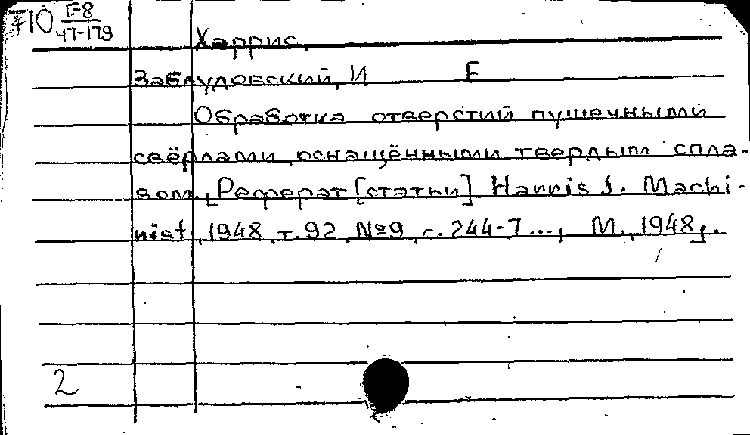 710 Г-8
47-179
Харрис,
Заблудовский, И Е
Обработка отверстий пушечными
свёрлами, оснащёнными твердым спла-
вом. [Реферат [статьи] Harris J. Machi-
nist, 1948, т. 92, №9, с. 244-7 ..., М., 1948г.
2